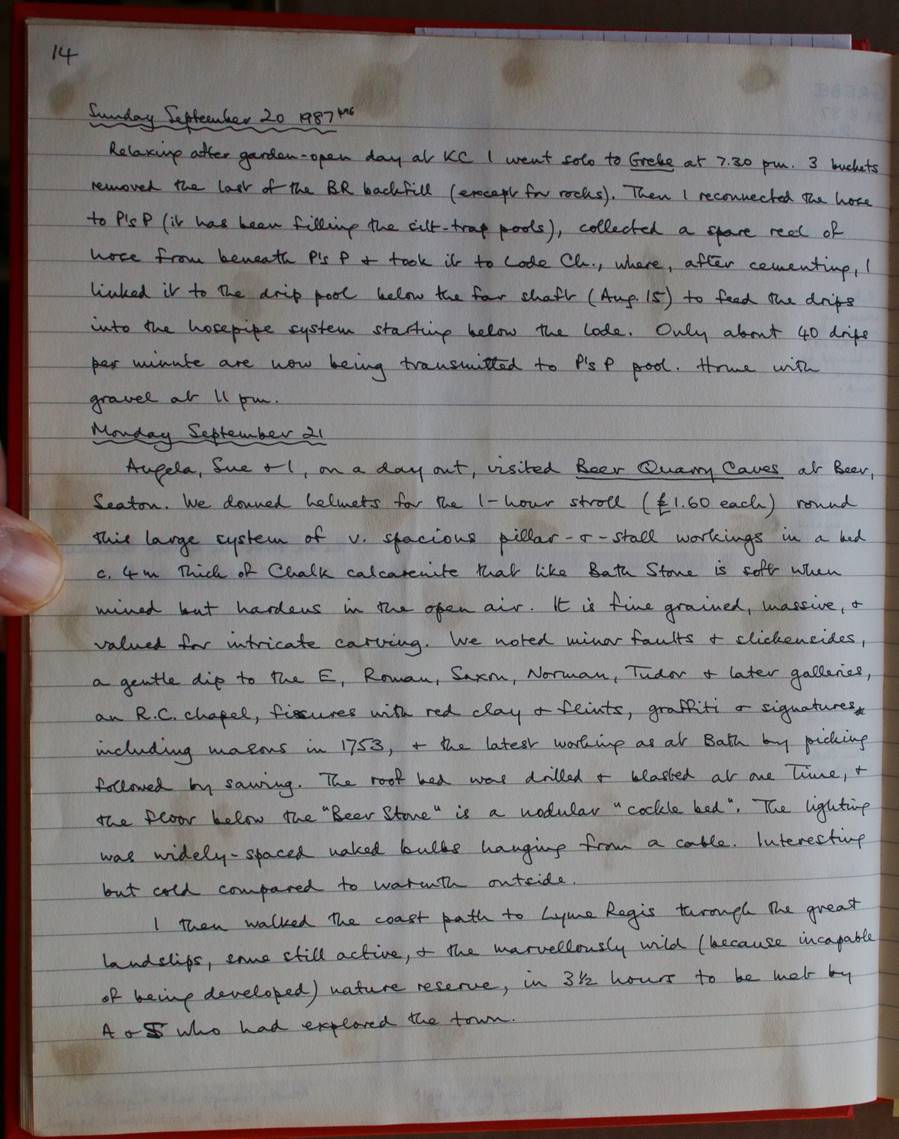 14
Sunday September 20 1987
Relaxing after garden-open day at KC I went solo to Grebe at 7.30 pm. 3 buckets
removed the last of the BR backfill (except for rocks). Then I reconnected the hose
to P's P (it has been filling the silt-trap pools), collected a spare reel of
hose from beneath P's P + took it to Lode Ch., where, after cementing, I
linked it to the drip pool below the far shaft (Aug. 15) to feed the drips
into the hosepipe system starting below the lode. Only about 40 drips
per minute are now being transmitted to P's P pool. Home with
gravel at 11 pm.
Monday September 21
Angela, Sue + I, on a day out, visited Beer Quarry Caves at Beer,
Seaton. We donned helmets for the 1-hour stroll (£1.60 each) round
this large system of v. spacious pillar-+-stall workings in a bed
c. 4m thick of Chalk calcarenite that like Bath Stone is soft when
mined but hardens in the open air. It is fine grained, massive, +
valued for intricate carving. We noted minor faults + slickensides,
a gentle dip to the E, Roman, Saxon, Norman, Tudor + later galleries,
an R.C. chapel, fissures with red clay + flints, graffiti + signatures
including masons in 1753, + the latest working as at Bath by picking
followed by sawing. The roof bed was drilled + blasted at one time, +
the floor below the "Beer Stone" is a nodular "cockle bed". The lighting
was widely-spaced naked bulbs hanging from a cable. Interesting
but cold compared to warmth outside.
I then walked the coast path to Lyme Regis through the great
landslips, some still active, + the marvellously wild (because incapable
of being developed) nature reserve, in 3½ hours to be met by
A + S who had explored the town.